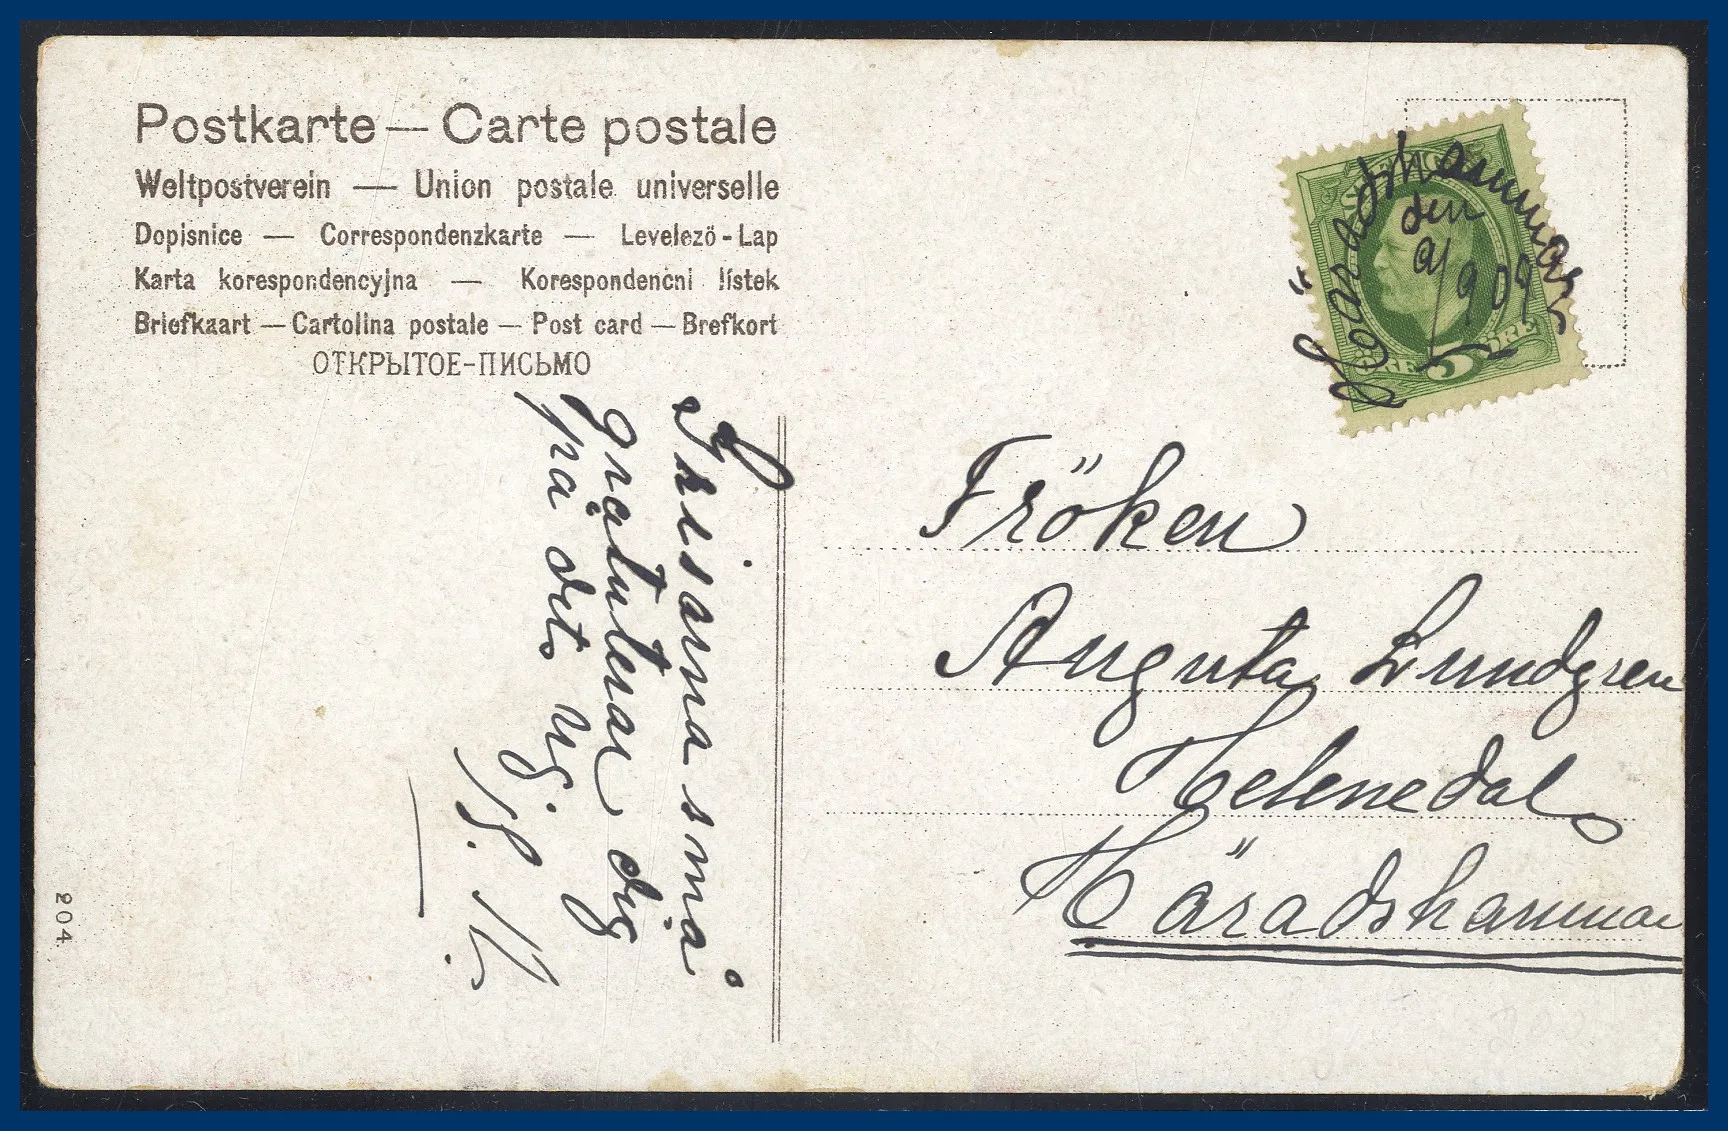 Postkarte — Carte postale
Weltpostverein — Union postale universelle
Dopisnice — Correspondenzkarte — Levelező-Lap
Karta korespondencyjna — Korespondenční lístek
Briefkaart — Cartolina postale — Post card — Brefkort
ОТКРЫТОЕ-ПИСЬМО
Häradshammar
den
1909
5
ÖRE 5 ÖRE
Fröken
Augusta Lundgren
Helenedal
Häradshammar
små
gratulerar dig
på det
204.